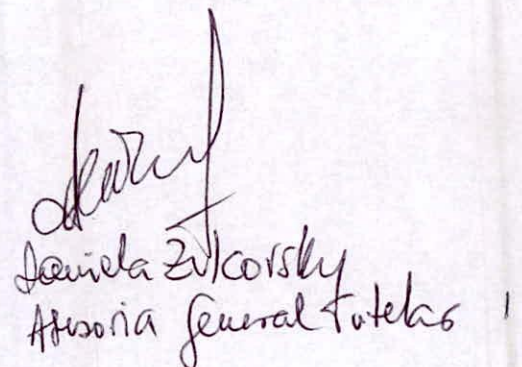 Daniela Zilcorsky
Asesoria General Tutelar